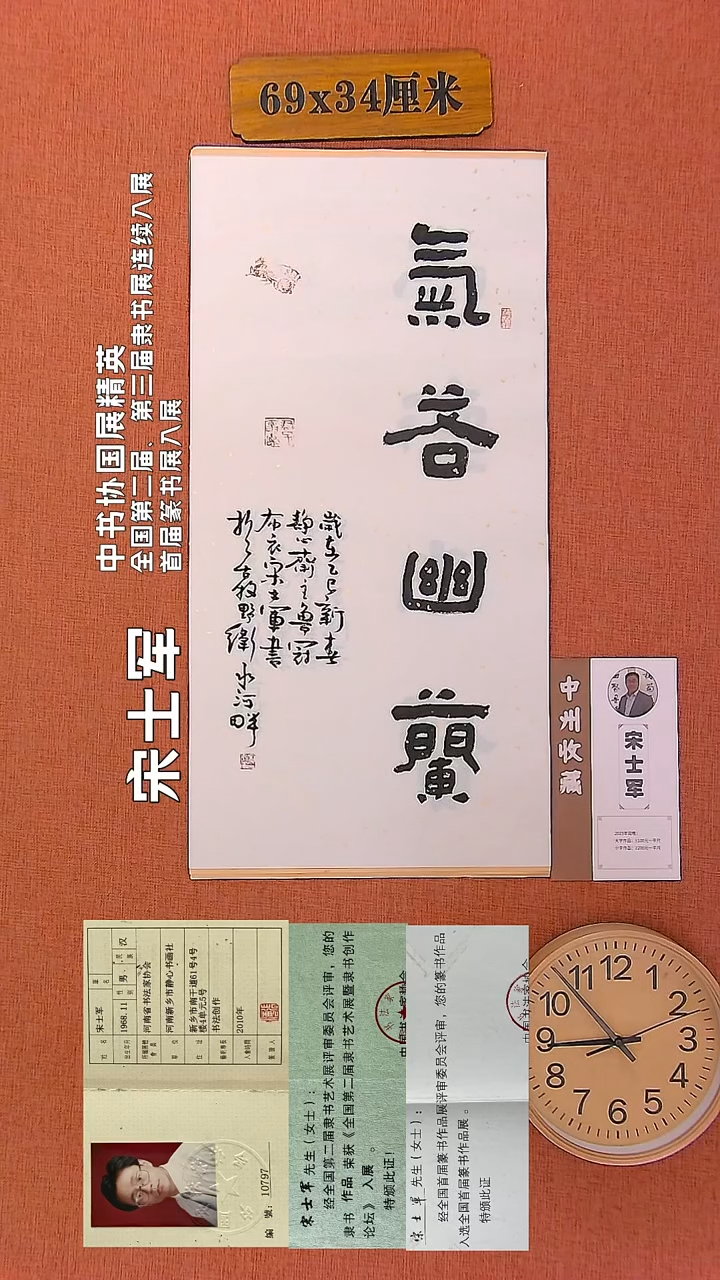 69x34厘米
氣若幽蘭
歲在乙巳新春
静心齋主魯冠
布衣宋士軍書
於古牧野衛水河畔
宋士军
中书协国展精英
全国第二届、第三届隶书展连续入展
首届篆书展入展
宋士军
姓名 宋士军
1968.11 性别 男 民族 汉
河南省书法家协会
河南新乡市静心书画社
新乡市南干道61号4号
楼4单元5号
书法创作
2010年
编号: 10797
宋士军 先生(女士):
经全国第二届隶书艺术展评审委员会评审,您的
隶书 作品 荣获《全国第二届隶书艺术展暨隶书创作
论坛》 入展 。
特颁此证!
宋士军 先生(女士):
经全国首届篆书作品展评审委员会评审,您的篆书作品
入选全国首届篆书作品展。
特颁此证
12
1
2
3
4
5
6
7
8
9
10
11